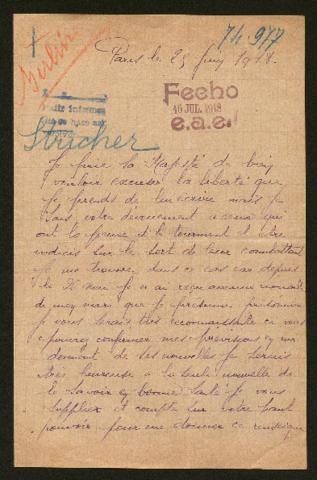 74.977
Berlin
Paris le 25 juin 1918.
Fecho
16 JUL. 1918
e.a.e.
Stricher
Je prie sa Majesté de bien
vouloir excuser la liberté que
je prends de lui écrire mais je
sais votre dévouement à ceux qui
ont la peine et le tourment d'être
sur le sort de leur combattant
je me trouve dans ce cas car depuis
le 26 je n ai reçu aucune
de mon mari que je prisonnier
je vous serais très reconnaissante si vous
pouvez confirmer mes prévisions en me
donnant de ses nouvelles je serais
très heureuse a la seule nouvelle de
le savoir en bonne santé je vous
supplie et compte sur votre haut
pouvoir pour me donner ce